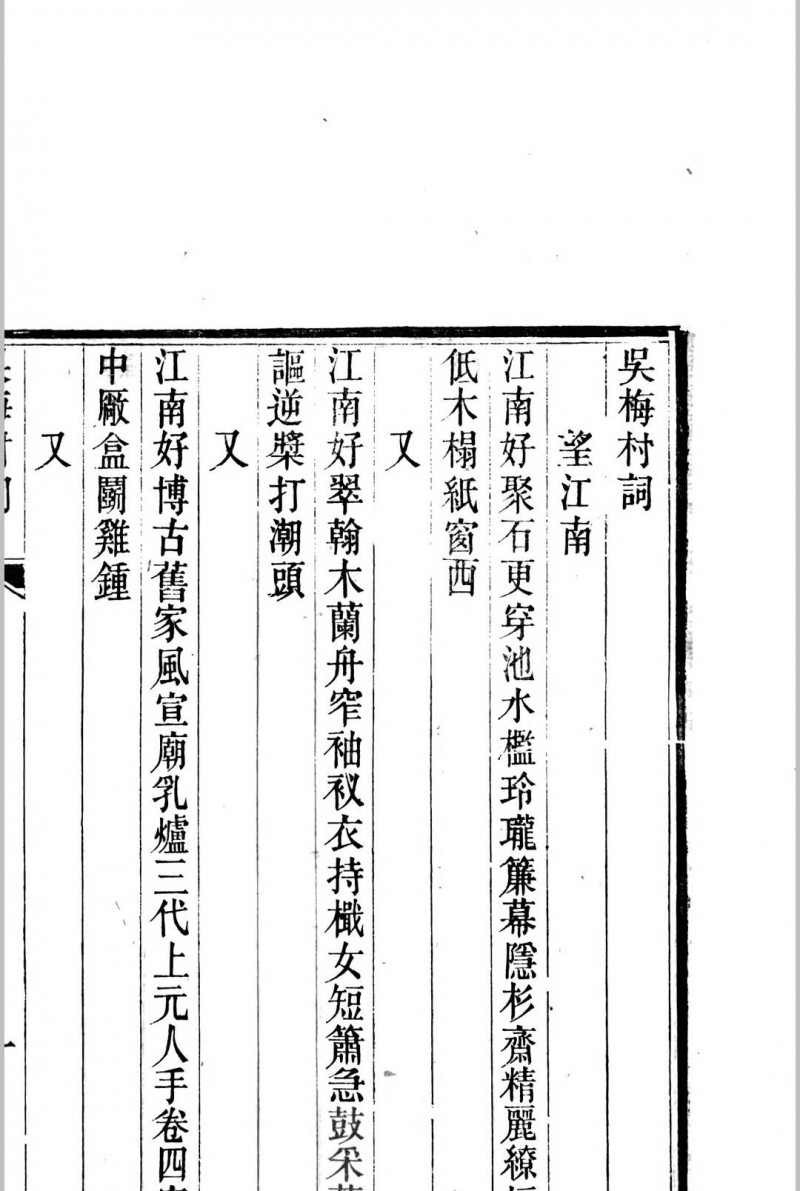 吳梅村詞
望江南
江南好聚石更穿池水檻玲瓏簾幕隱杉齋精麗繚
低木榻紙窗西
又
江南好翠翰木蘭舟窄袖衩衣持檝女短簫急鼓采
謳逆槳打潮頭
又
江南好博古舊家風宣廟乳爐三代上元人手卷四
中厰盒鬬雞鍾
又